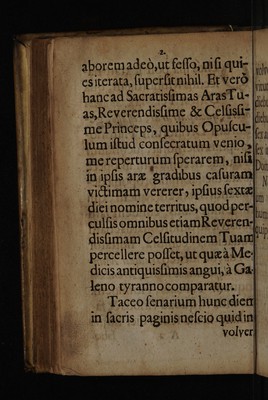 2.
aborem adeò, ut fesso, nisi qui-
es iterata, supersit nihil. Et verò
hanc ad Sacratissimas Aras Tu-
as, Reverendissime & Celsissi-
me Princeps, quibus Opuscu-
lum istud consecratum venio,
me reperturum sperarem, nisi
in ipsis aræ gradibus casuram
victimam vererer, ipsius sextæ
diei nomine territus, quod per-
culsis omnibus etiam Reveren-
dissimam Celsitudinem Tuam
percellere posset, ut quæ à Me-
dicis antiquissimis angui, à Ga-
leno tyranno comparatur.
Taceo senarium hunc diem
in sacris paginis nescio quid in
volver